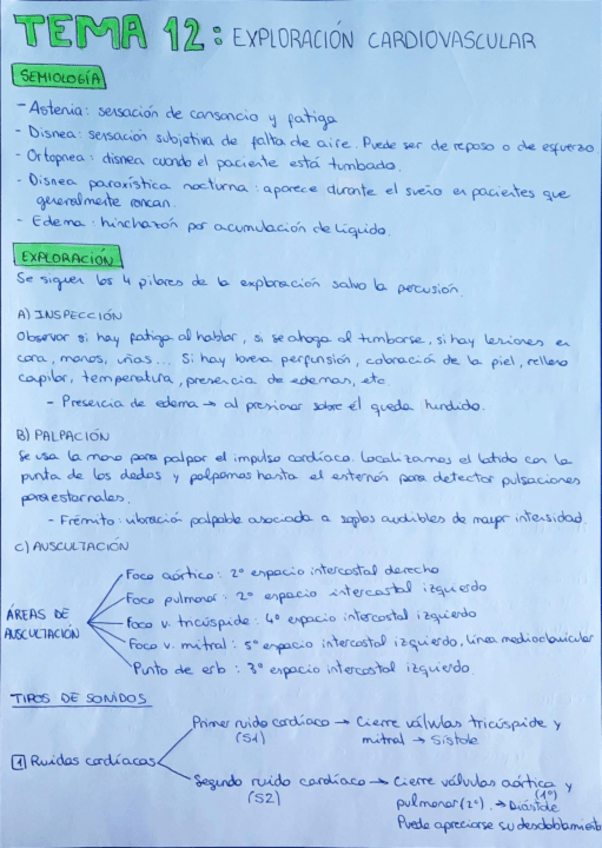 TEMA 12: EXPLORACIÓN CARDIOVASCULAR
SEMIOLOGÍA
- Astenia: sensación de cansancio y fatiga
- Disnea: sensación subjetiva de falta de aire. Puede ser de reposo o de esfuerzo.
- Ortopnea: disnea cuando el paciente está tumbado.
- Disnea paroxística nocturna: aparece durante el sueño en pacientes que
generalmente roncan.
- Edema: hinchazón por acumulación de líquido.
EXPLORACIÓN
Se siguen los 4 pilares de la exploración salvo la percusión.
A) INSPECCIÓN
Observar si hay fatiga al hablar, si se ahoga al tumbarse, si hay lesiones en
cara, manos, uñas... Si hay buena perfunsión, coloración de la piel, relleno
capilar, temperatura, presencia de edemas, etc.
- Presencia de edema → al presionar sobre él queda hundido.
B) PALPACIÓN
Se usa la mano para palpar el impulso cardíaco. Localizamos el latido con la
punta de los dedos y palpamos hasta el esternón para detectar pulsaciones
paraesternales.
- Frémito: vibración palpable asociada a soplos audibles de mayor intensidad.
C) AUSCULTACIÓN
ÁREAS DE
AUSCULTACIÓN
Foco aórtico: 2º espacio intercostal derecho
Foco pulmonar: 2º espacio intercostal izquierdo
Foco v. tricúspide: 4º espacio intercostal izquierdo
Foco v. mitral: 5º espacio intercostal izquierdo, línea medioclavicular
Punto de erb: 3º espacio intercostal izquierdo.
TIPOS DE SONIDOS
1 Ruidos cardíacos
Primer ruido cardíaco → Cierre válvulas tricúspide y
(S1) mitral → Sístole
Segundo ruido cardíaco → Cierre válvulas aórtica y
(S2) pulmonar (2º). (1º) → Diástole
Puede apreciarse su desdoblamiento